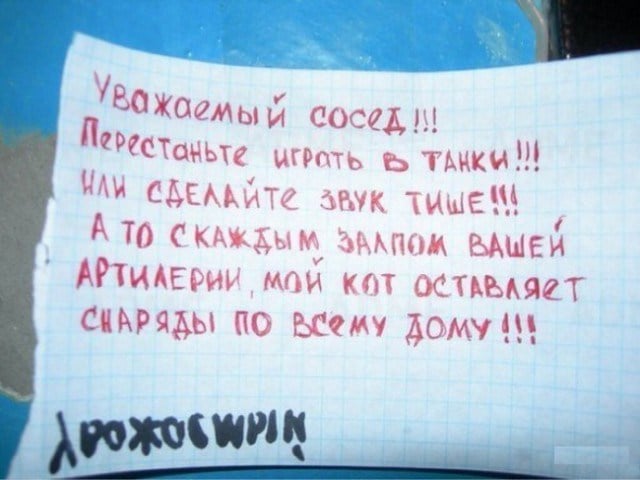 Уважаемый сосед!!!
Перестаньте играть в танки!!!
или сделайте звук тише!!!
А то скаждым залпом вашей
артилерии, мой кот оставляет
снаряды по всему дому!!!